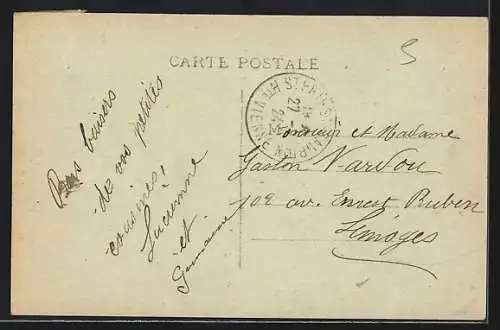 CARTE POSTALE
5
Bons baisers
de vos petites
cousines!
Lucienne
et
Germaine
HTE VIENNE
27
24
Monsieur et Madame
Gaston Nardou
102 av. Ernest Ruben
Limoges